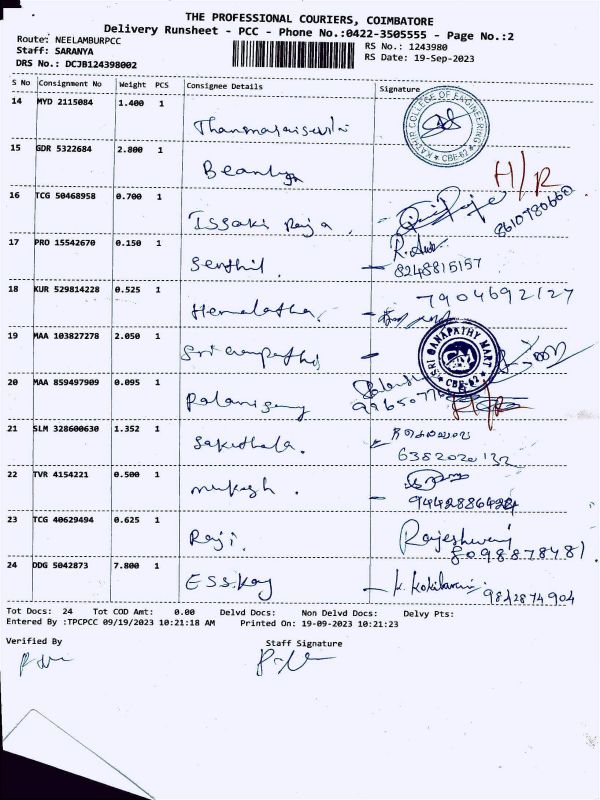 THE PROFESSIONAL COURIERS, COIMBATORE
Delivery Runsheet - PCC - Phone No.:0422-3505555 - Page No.:2
Route: NEELAMBURPCC
RS No.: 1243980
Staff: SARANYA
RS Date: 19-Sep-2023
DRS No.: DCJB124398002
S No Consignment No Weight PCS Consignee Details Signature
14 MYD 2115084 1.400 1
KATHIR COLLEGE OF ENGINEERING
★ CBE-62 ★
15 GDR 5322684 2.800 1
H/R
16 TCG 50468958 0.700 1 Issaki Raja
8610780660
17 PRO 15542670 0.150 1 Senthil.
8248815157
18 KUR 529814228 0.525 1 Hemalatha.
7904692127
19 MAA 103827278 2.050 1
SRI GANAPATHY MART
★ CBE-62 ★
20 MAA 859497909 0.095 1
21 SLM 328600630 1.352 1 Sakuthala.
6382020132
22 TVR 4154221 0.500 1 mukesh.
23 TCG 40629494 0.625 1 Raji. Rajeshwari
8098878481
24 DDG 5042873 7.800 1 ESSKay
9842874904
Tot Docs: 24 Tot COD Amt: 0.00 Delvd Docs: Non Delvd Docs: Delvy Pts:
Entered By :TPCPCC 09/19/2023 10:21:18 AM Printed On: 19-09-2023 10:21:23
Verified By Staff Signature